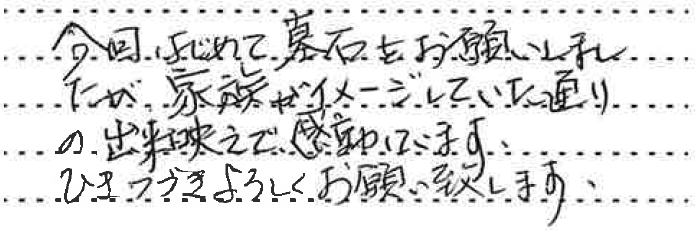 今回はじめて墓石をお願いしまし
たが、家族がイメージしていた通り
の出来映えで感動しています、
ひきつづきよろしくお願い致します、